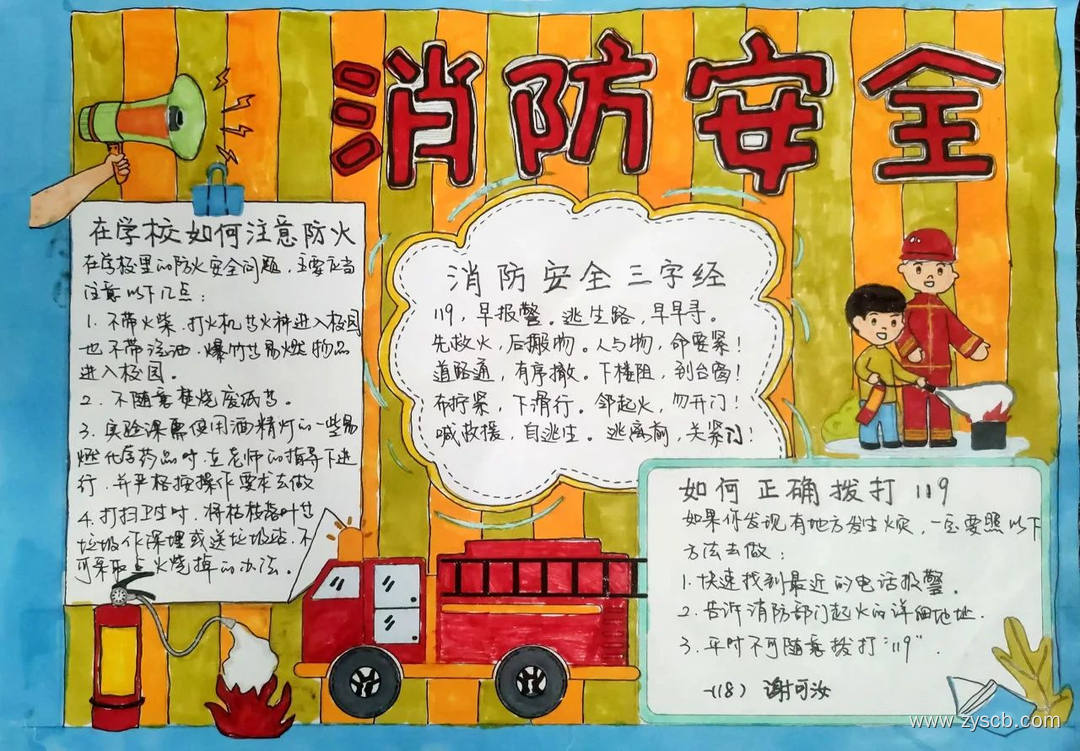 消防安全
在学校如何注意防火
在学校里的防火安全问题,主要应当
注意以下几点:
1. 不带火柴、打火机等火种进入校园
也不带汽油、爆竹等易燃物品
进入校园。
2. 不随意焚烧废纸等。
3. 实验课需使用酒精灯的一些易
燃化学药品时,在老师的指导下进
行,并严格按操作要求去做
4. 打扫卫生时,将枯枝落叶等
垃圾作深埋或送垃圾站,不
可采取点火烧掉的办法。
消防安全三字经
119,早报警。逃生路,早早寻。
先救火,后搬物。人与物,命要紧!
道路通,有序撤。下楼阻,到台窗!
布拧紧,下滑行。邻起火,勿开门!
喊救援,自逃生。逃离前,关紧门!
如何正确拨打119
如果你发现有地方发生火灾,一定要照以下
方法去做:
1. 快速找到最近的电话报警。
2. 告诉消防部门起火的详细地址.
3. 平时不可随意拨打“119”.
一(18) 谢可汝
www.zyscb.com